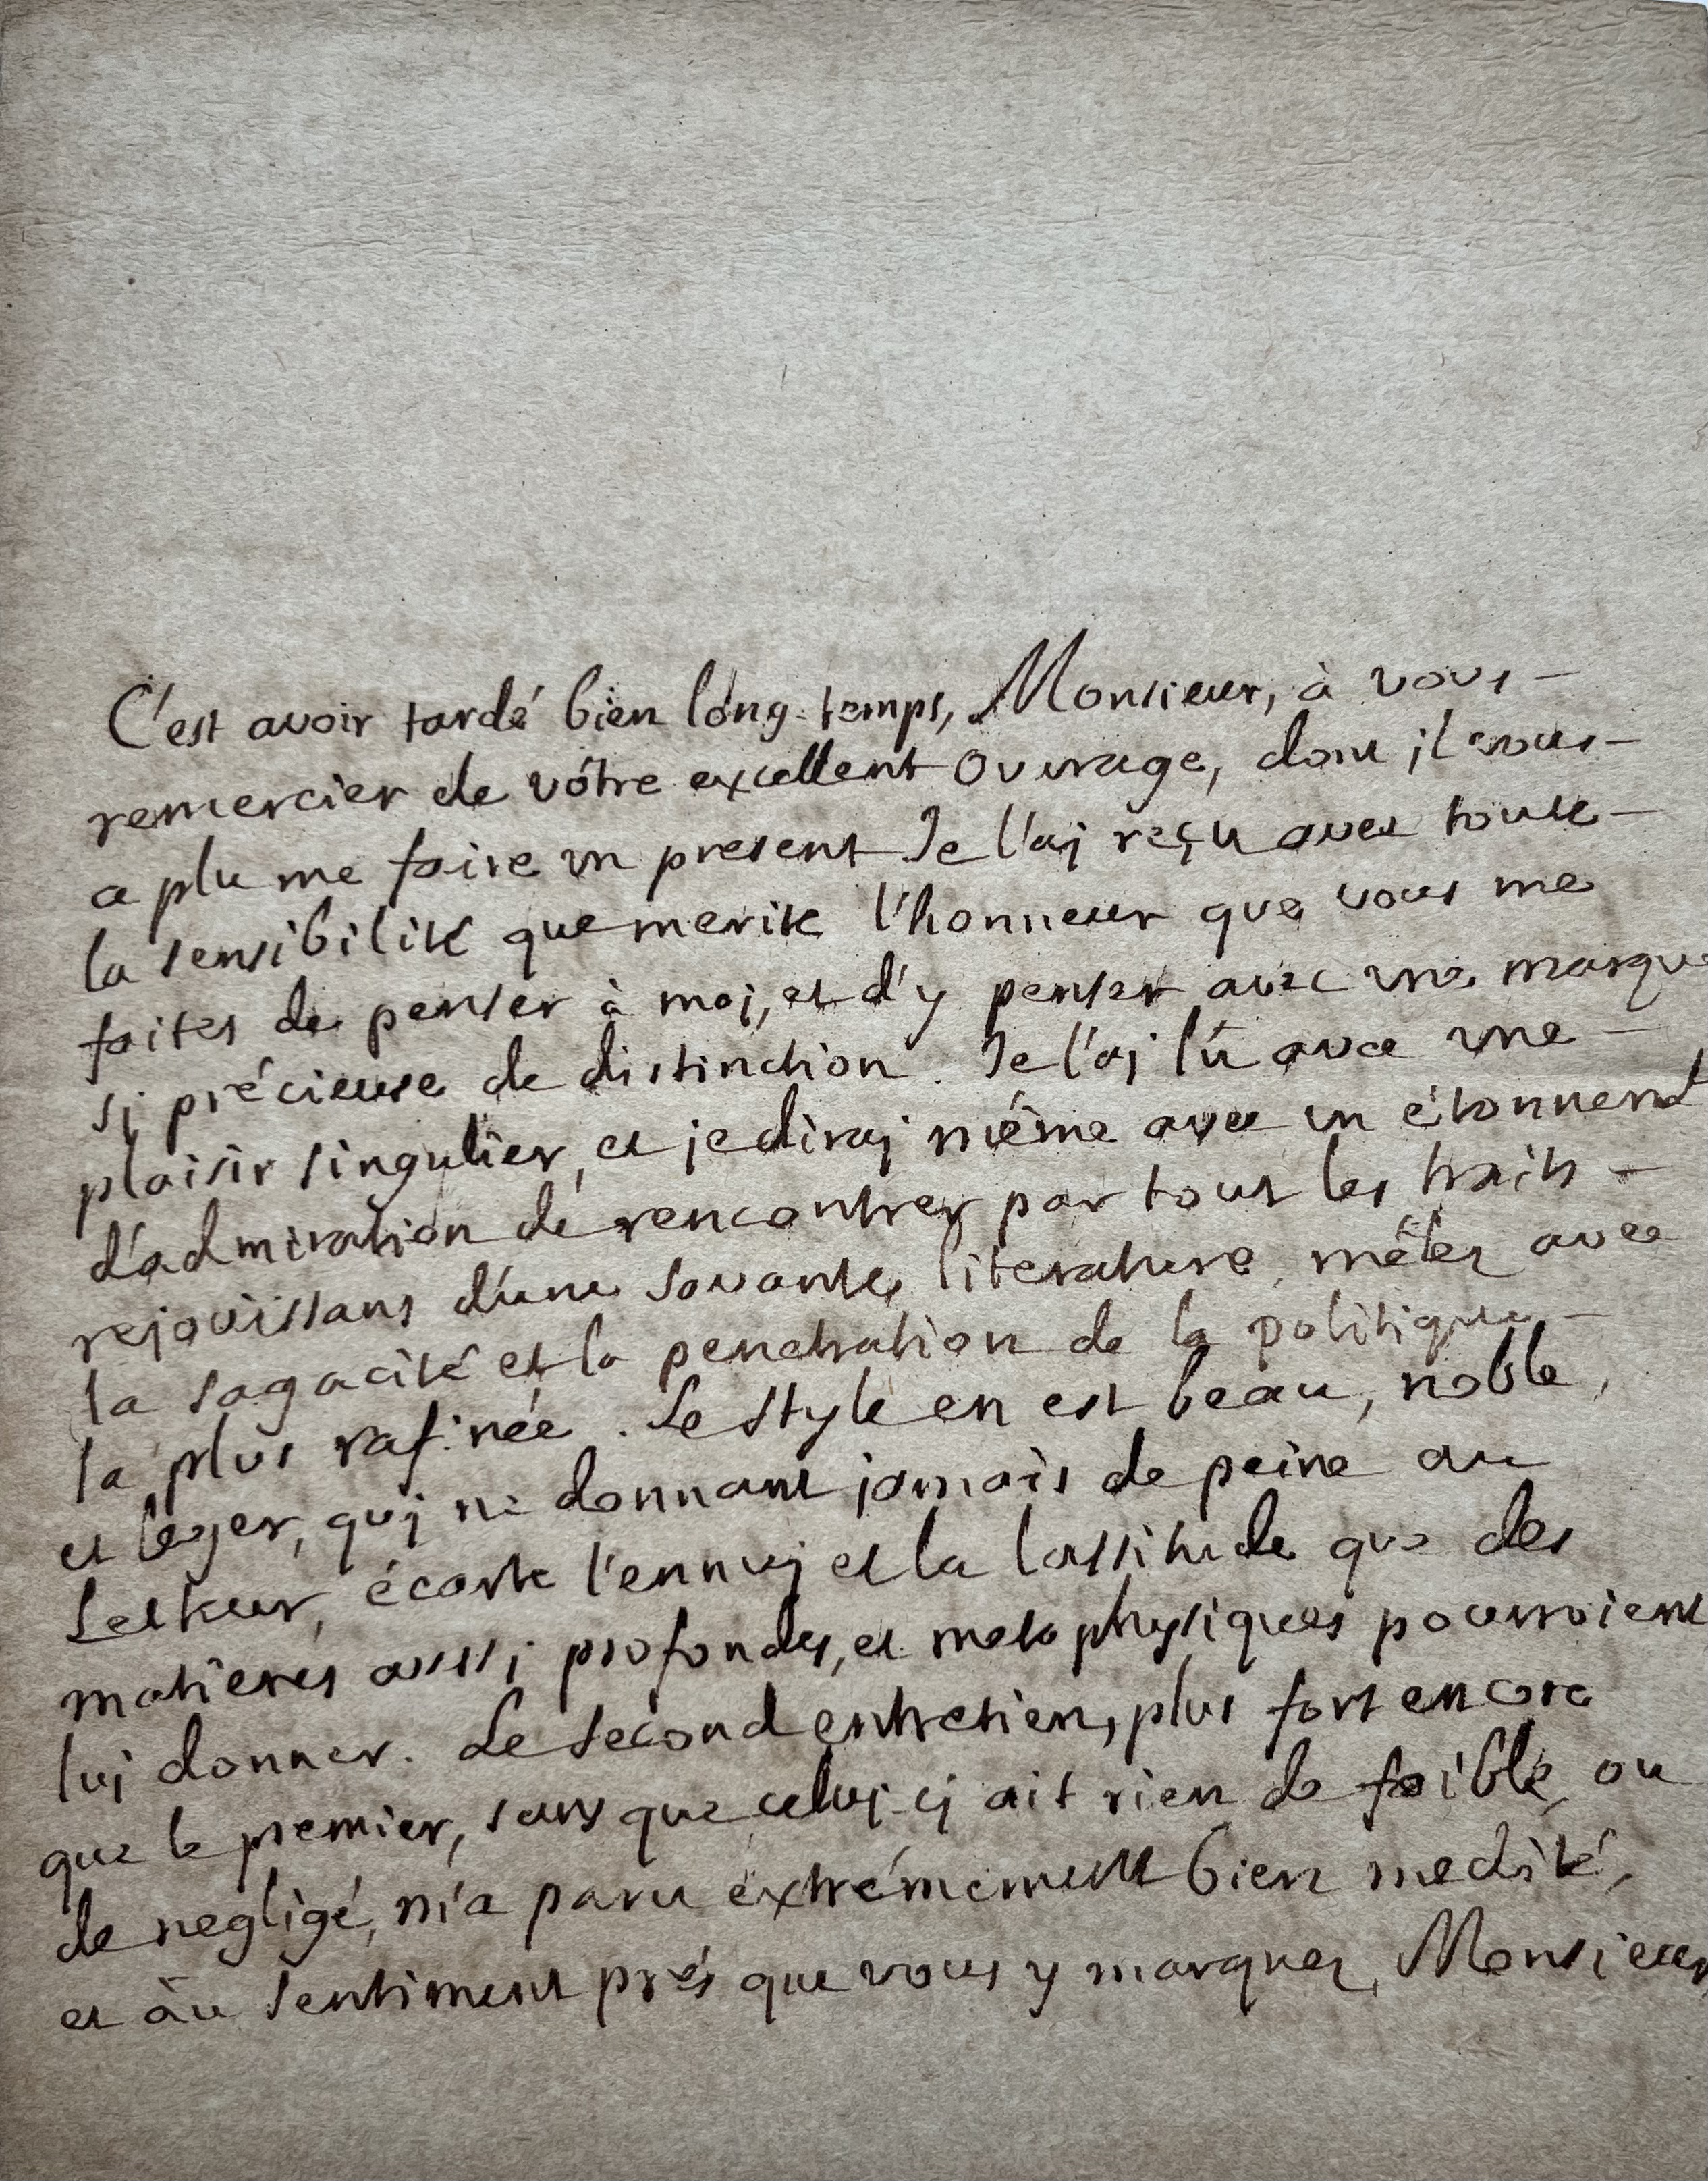 C'est avoir tardé bien long-temps, Monsieur, à vous –
remercier de vôtre excellent Ouvrage, dont il vous –
a plu me faire un present Je l'aj reçu avec toute –
la sensibilité que merite l'honneur que vous me
faites de penser à moj, et d'y penser avec une marque
sj précieuse de distinction. Je l'aj lû avec une –
plaisir singulier, et je diraj même avec un étonnent
d'admiration de rencontrer par tout les traits –
rejoüissans d'une savante literature, mêlez avec
la sagacité et la penetration de la politique –
la plus rafinée. Le style en est beau, noble,
et leger, quj ne donnant jamais de peine au
Lecteur, écarte l'ennuj et la lassitude que des
matieres aussj profondes, et metaphysiques pourroient
luj donner. Le second entretien, plus fort encore
que le premier, sans que celuj-cj ait rien de foible, ou
de negligé, m'a paru extrémement bien medité,
et au sentiment prés que vous y marquez, Monsieur,